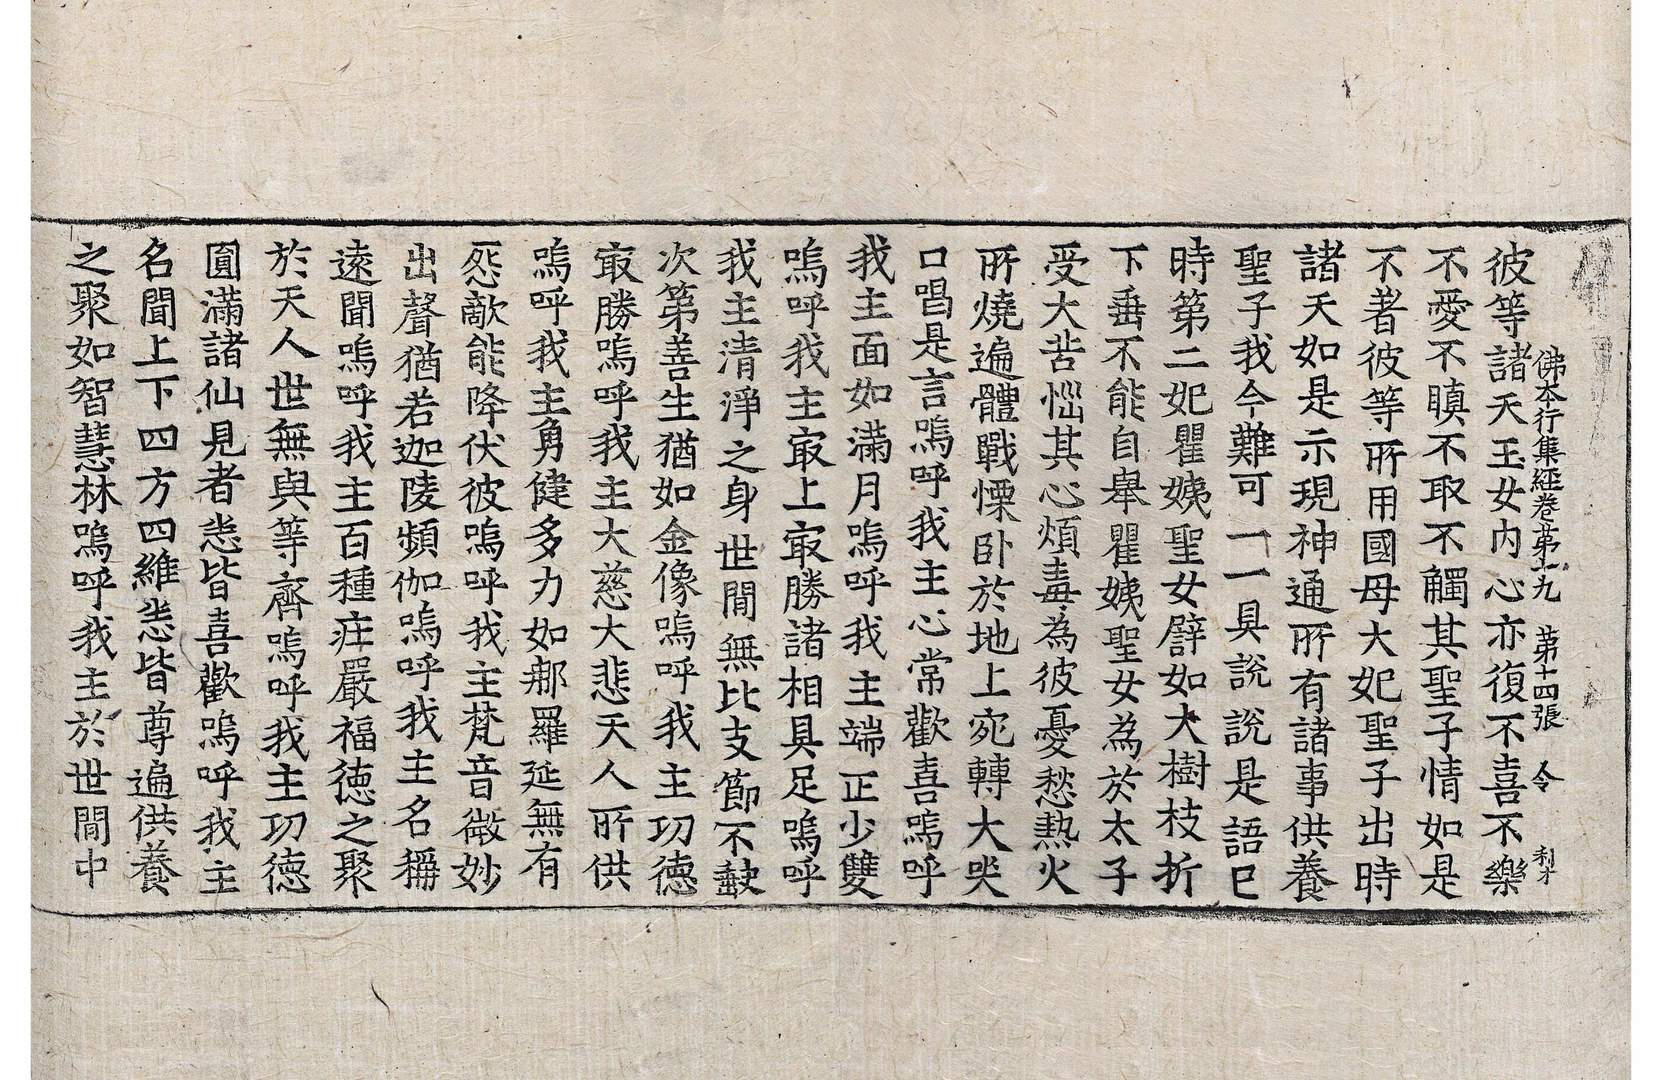 佛本行集經卷苐十九 苐十四張 令 利才
彼等諸天玉女内心亦復不喜不樂
不愛不瞋不取不觸其聖子情如是
不著彼等所用國母大妃聖子出時
諸天如是示現神通所有諸事供養
聖子我今難可一一具說說是語已
時第二妃瞿姨聖女譬如大樹枝折
下垂不能自舉瞿姨聖女為於太子
受大苦惱其心煩毒為彼憂愁熱火
所燒遍體戰慄卧於地上宛轉大哭
口唱是言嗚呼我主心常歡喜嗚呼
我主面如滿月嗚呼我主端正少雙
嗚呼我主冣上冣勝諸相具足嗚呼
我主清淨之身世間無比支節不皷
次第善生猶如金像嗚呼我主功德
冣勝嗚呼我主大慈大悲天人所供
嗚呼我主勇健多力如那羅延無有
怨敵能降伏彼嗚呼我主梵音微妙
出聲猶若迦陵頻伽嗚呼我主名稱
遠聞嗚呼我主百種莊嚴福德之聚
於天人世無與等齊嗚呼我主功德
圓滿諸仙見者悉皆喜歡嗚呼我主
名聞上下四方四維悉皆尊遍供養
之聚如智慧林嗚呼我主於世間中